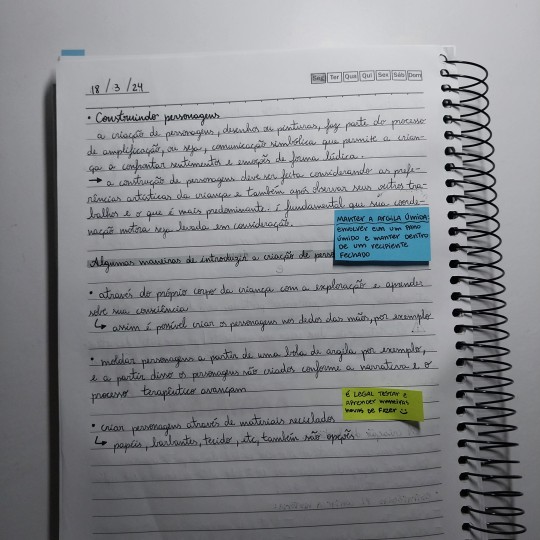 18 / 3 / 24
Seg Ter Qua Qui Sex Sáb Dom
• Construindo personagens
a criação de personagens, desenhos ou pinturas, faz parte do processo
de amplificação, ou seja, comunicação simbólica que permite a crian-
ça a confrontar sentimentos e emoções de forma lúdica.
→ a construção de personagens deve ser feita considerando as prefe-
rências artísticas da criança e também após observar seus outros tra-
balhos e o que é mais predominante. é fundamental que sua coorde-
nação motora seja levada em consideração.
MANTER A ARGILA ÚMIDA:
ENVOLVER EM UM PANO
ÚMIDO E MANTER DENTRO
DE UM RECIPIENTE
FECHADO
Algumas maneiras de introduzir a criação de perso
• através do próprio corpo da criança com a exploração e aprender
sobre sua consciência
↳ assim é possível criar os personagens nos dedos das mãos, por exemplo
• moldar personagens a partir de uma bola de argila por exemplo,
e a partir disso os personagens são criados conforme a narrativa e o
processo terapêutico avançam
É LEGAL TESTAR E
APRENDER MANEIRAS
NOVAS DE FAZER
• criar personagens através de materiais reciclados
↳ papéis, barbantes, tecido, etc, também são opções